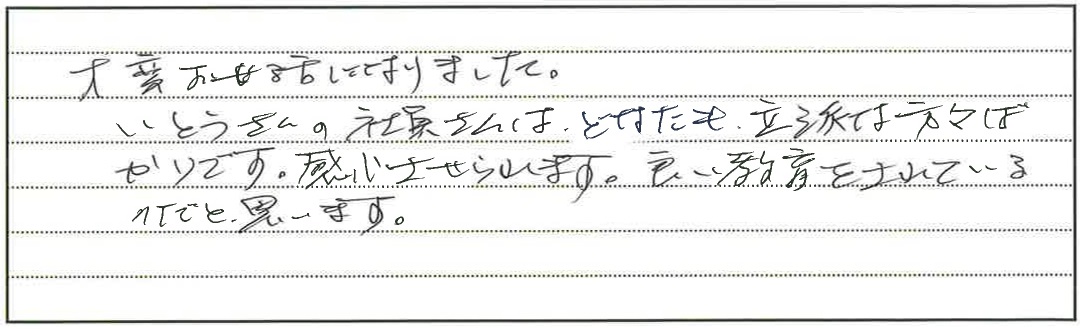 大変お世話になりました。
いとうさんの社員さんは、どなたも、立派な方々ば
かりです。感心させられます。良い教育をされている
のでと思います。